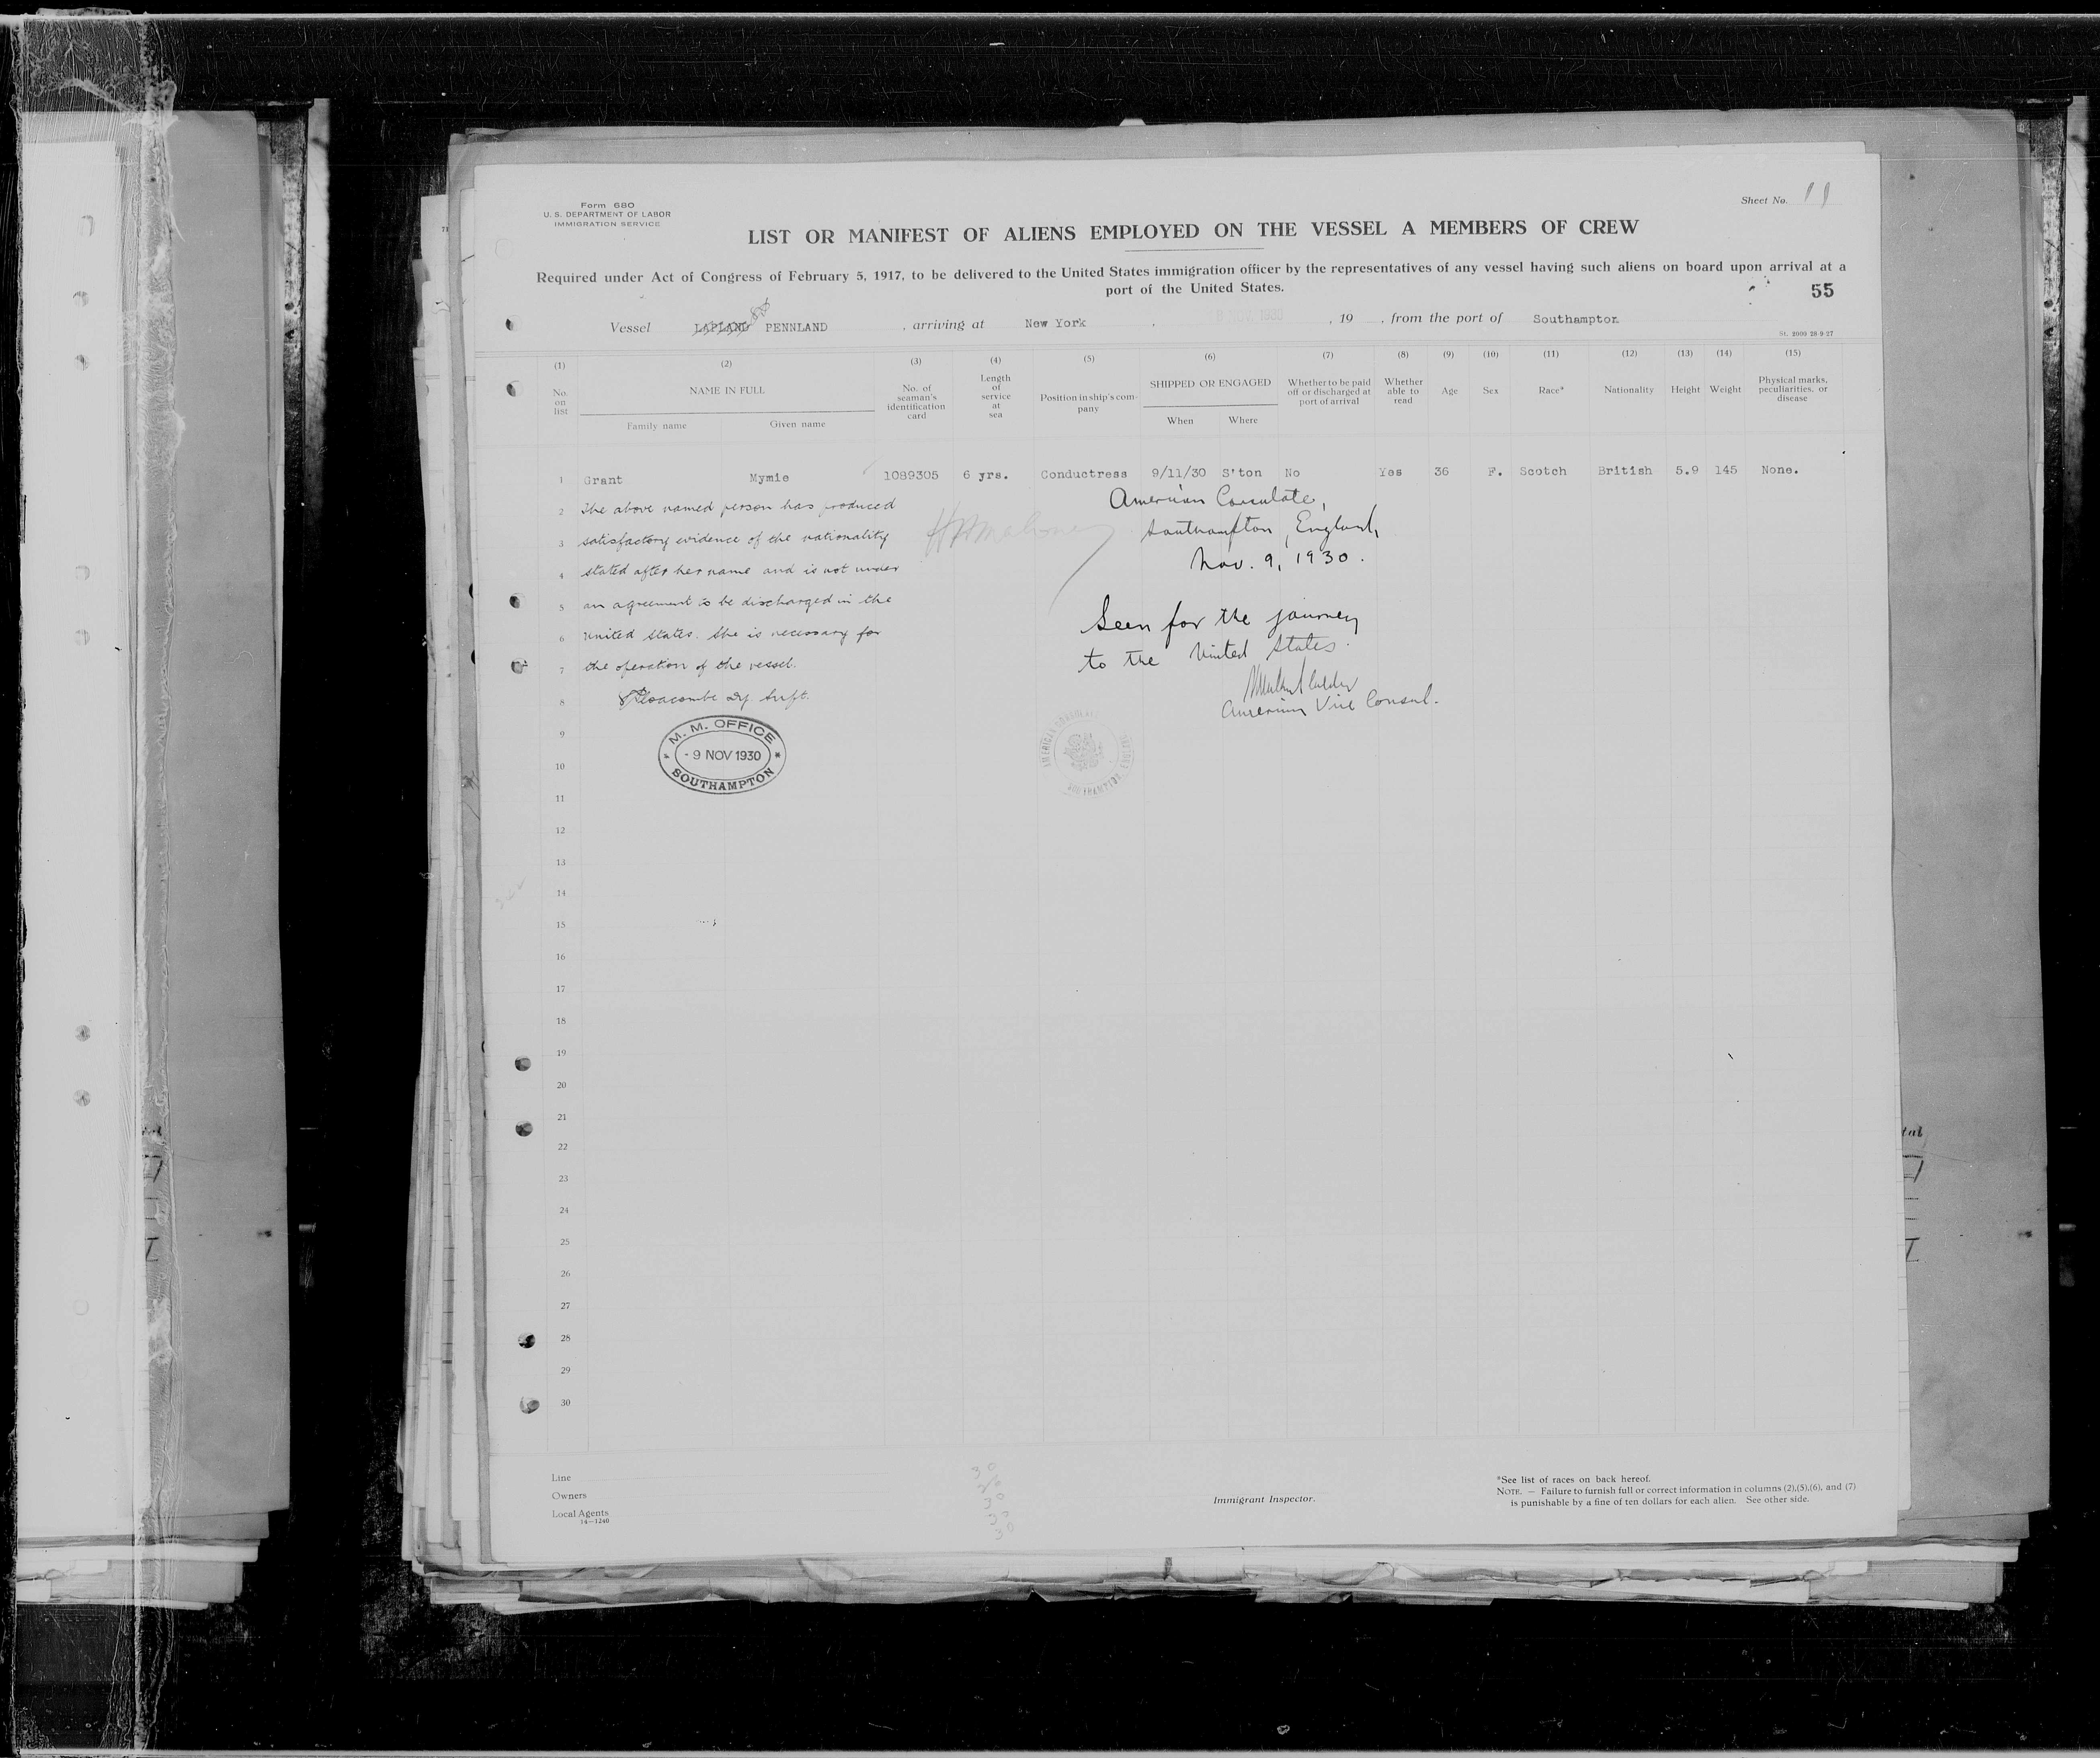 Form 680
U. S. DEPARTMENT OF LABOR
IMMIGRATION SERVICE
Sheet No. 11
LIST OR MANIFEST OF ALIENS EMPLOYED ON THE VESSEL A MEMBERS OF CREW
Required under Act of Congress of February 5, 1917, to be delivered to the United States immigration officer by the representatives of any vessel having such aliens on board upon arrival at a
port of the United States.
55
Vessel LAPLAND PENNLAND , arriving at New York , 8 NOV. 1930 , 19 , from the port of Southampton
St. 2000 28 9 27
(1) (2) (3) (4) (5) (6) (7) (8) (9) (10) (11) (12) (13) (14) (15)
No. on list
NAME IN FULL
Family name Given name
No. of seaman's identification card
Length of service at sea
Position in ship's company
SHIPPED OR ENGAGED
When Where
Whether to be paid off or discharged at port of arrival
Whether able to read
Age
Sex
Race*
Nationality
Height
Weight
Physical marks, peculiarities. or disease
1 Grant Mymie 1089305 6 yrs. Conductress 9/11/30 S'ton No Yes 36 F. Scotch British 5.9 145 None.
2 The above named person has produced
3 satisfactory evidence of the nationality
4 stated after her name and is not under
5 an agreement to be discharged in the
6 United States. She is necessary for
7 the operation of the vessel.
8 Dy Supt.
M. M. OFFICE
- 9 NOV 1930
SOUTHAMPTON
American Consulate,
Southampton, England,
Nov. 9, 1930.
Seen for the journey
to the United States.
American Vice Consul.
AMERICAN CONSULATE
SOUTHAMPTON, ENGLAND
9
10
11
12
13
14
15
16
17
18
19
20
21
22
23
24
25
26
27
28
29
30
Line
Owners
Local Agents
14—1240
Immigrant Inspector.
*See list of races on back hereof.
NOTE. — Failure to furnish full or correct information in columns (2),(5),(6), and (7)
is punishable by a fine of ten dollars for each alien. See other side.